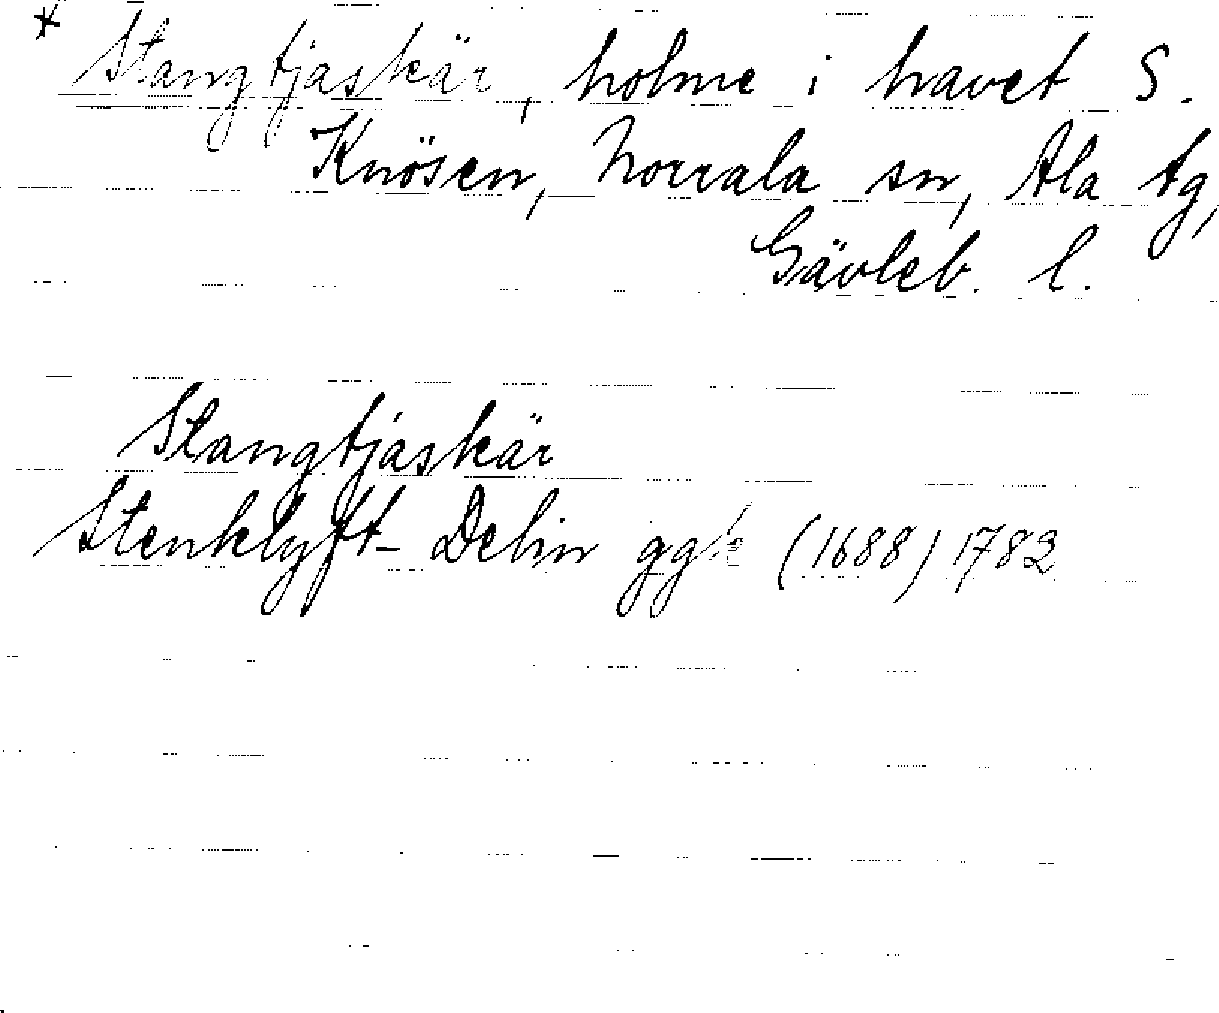 * Stangtjaskär, holme i havet S.
Knösen, Norrala sn, Ala tg,
Gävleb. l.
Stangtjaskär
Stenklyft- Delin ggk (1688) 1782